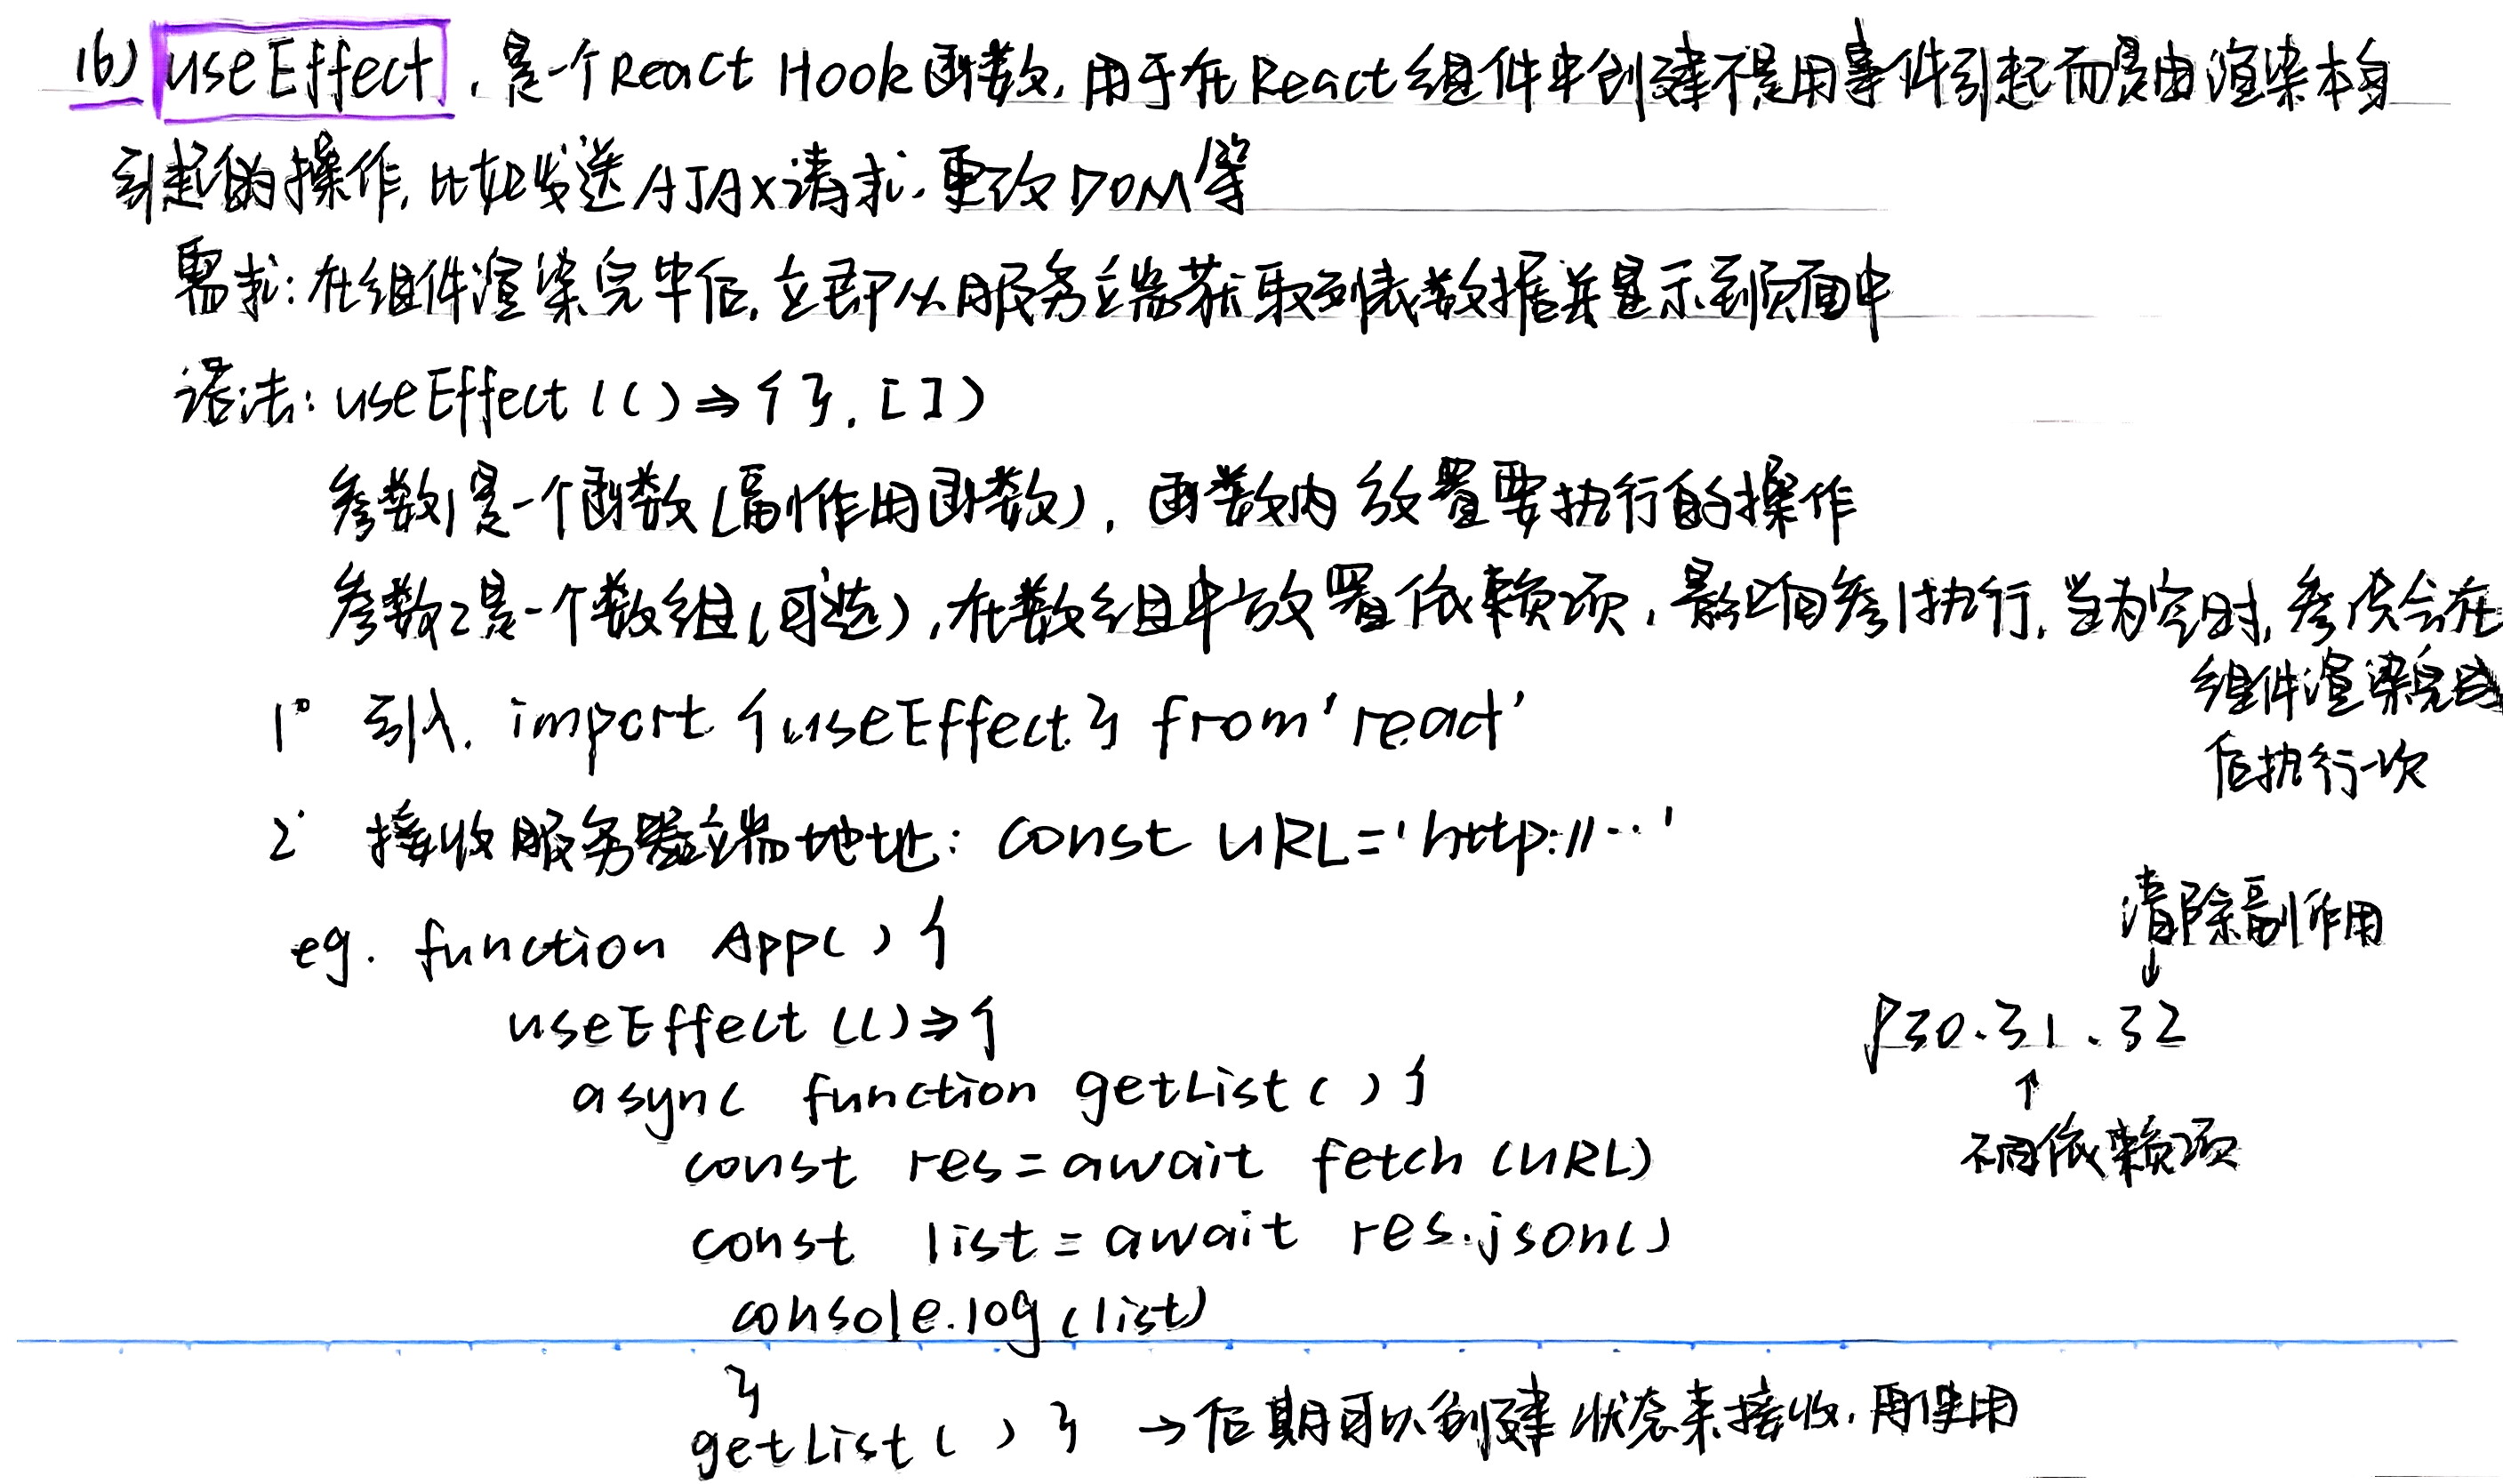 16) useEffect，是一个React Hook函数，用于在React组件中创建不是用事件引起而是由渲染本身
引起的操作，比如发送AJAX请求，更改DOM等
需求：在组件渲染完毕后，立即从服务端获取列表数据并显示到页面中
语法：useEffect(()=>{}, [])
参数1是一个函数(副作用函数)，函数内放置要执行的操作
参数2是一个数组(可选)，在数组中放置依赖项，影响参1执行，当为空时，参1会在
组件渲染完成
后执行一次
1° 引入. import {useEffect} from 'react'
2° 接收服务器端地址：const URL='http://…'
清除副作用
↓
eg. function App() {
useEffect(()=>{
P30.31.32
↑
async function getList() {
不同依赖项
const res=await fetch(URL)
const list=await res.json()
console.log(list)
}
getList() } →后期可以创建状态来接收，再使用